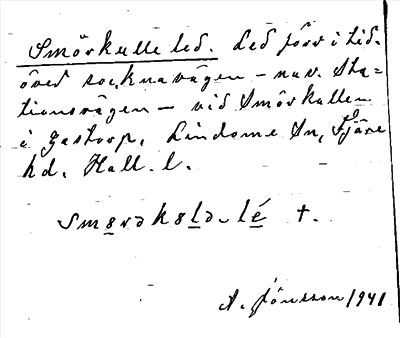 Smörkulle led. Led förr i tid.
över socknavägen - nuv. Sta-
tionsvägen - vid Smörkullen
i Gastorp, Lindome sn, Fjäre
hd. Hall. l.
A. Jönsson 1941